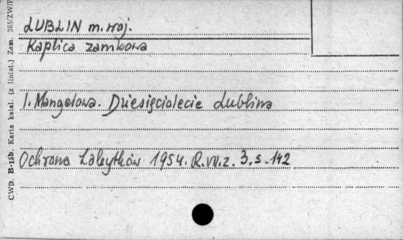 LUBLIN m. woj.
Kaplica zamkowa
I. Mangelowa. Dziesięciolecie Lublina
Ochrona Zabytków 1954. R. VII. z. 3, s. 142
CWD. B-14b. Karta katal. (z liniat.) Zam. 365/ZW/